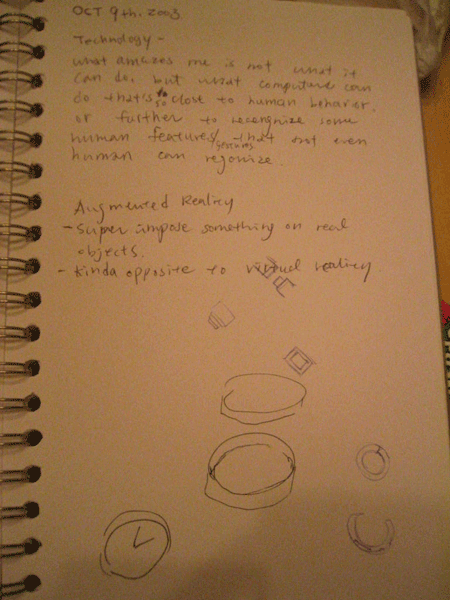 OCT 9th. 2003
Technology -
what amazes me is not what it
can do, but what computer can
do that's so close to human behavior.
or further to recongnize some
human features/gestures that not even
human can regonize.
Augmented Reality
- Super impose something on real
objects.
- Kinda opposite to virtual reality.